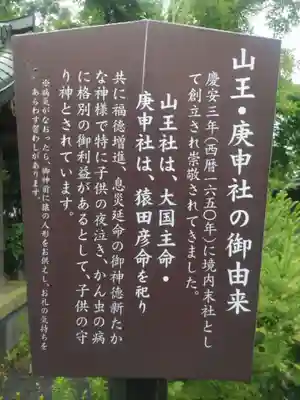 山王・庚申社の御由来
慶安三年(西暦一六五〇年)に境内末社とし
て創立され崇敬されてきました。
山王社は、大国主命・
庚申社は、猿田彦命を祀り
共に福徳増進、息災延命の御神徳新たか
な神様で特に子供の夜泣き、かん虫の病
に格別の御利益があるとして、子供の守
り神とされています。
※病気がなおったら、御神前に猿の人形をお供えし、お礼の気持ちを
あらわす習わしがあります。